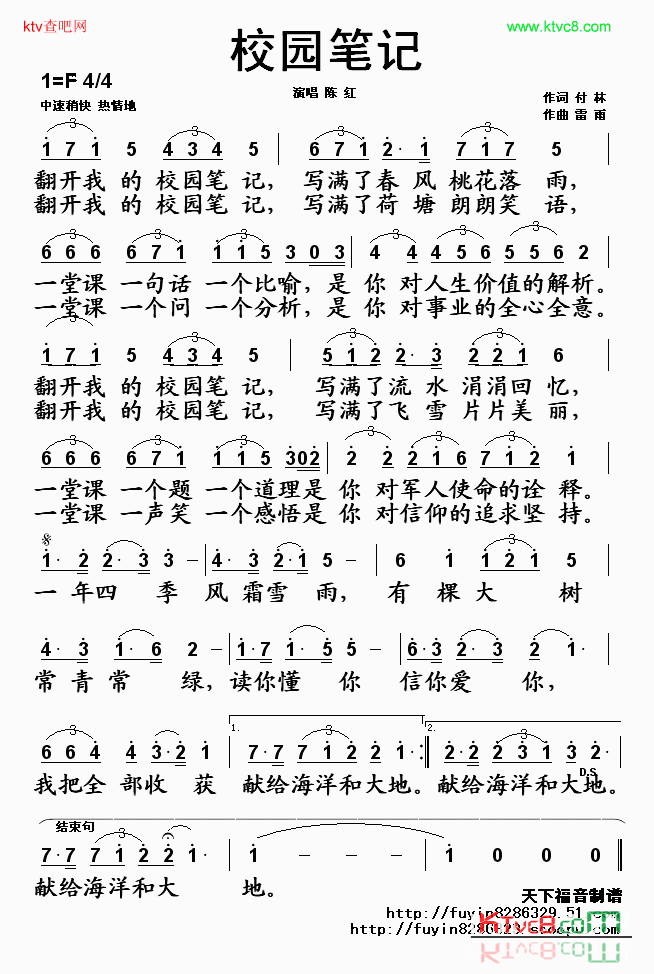 ktv查吧网
www.ktvc8.com
校园笔记
1=F 4/4
演唱 陈 红
中速稍快 热情地
作词 付 林
作曲 雷 雨
1 7 1 5 4 3 4 5 | 6 7 1 2· 1 7 1 7 5
翻开我 的 校园笔 记， 写满了春 风 桃花落 雨，
翻开我 的 校园笔 记， 写满了荷 塘 朗朗笑 语，
6 6 6 6 7 1 1 1 5 3 0 3 | 4 4 4 5 6 5 5 6 2
一堂课 一句话 一个比喻，是 你 对人生价值的解析。
一堂课 一个问 一个分析，是 你 对事业的全心全意。
1 7 1 5 4 3 4 5 | 5 1 2 2· 3 2 1 2 6
翻开我 的 校园笔 记， 写满了流 水 涓涓回 忆，
翻开我 的 校园笔 记， 写满了飞 雪 片片美 丽，
6 6 6 6 7 1 1 1 5 302 | 2 2 2 1 6 7 1 2 1
一堂课 一个题 一个道理是 你 对军人使命的诠 释。
一堂课 一声笑 一个感悟是 你 对信仰的追求坚 持。
1· 2 2· 3 3 – | 4· 3 2· 1 5 – | 6 1 1 2 1 5
一 年四 季 风 霜雪 雨， 有 棵 大 树
4· 3 1· 6 2 – | 1·7 1· 5 5 – | 6·3 2· 3 2 1·
常 青 常 绿，读你懂 你 信你爱 你，
6 6 4 4 3·2 1 | 1. 7·7 7 1 2 2 1 2· :| 2. 7·7 2 3 1 3 2·
D.S
我把全 部收 获 献给海洋和大地。献给海洋和大地。
结束句
7·7 7 1 2 2 1· | 1 – – – | 1 0 0 0
献给海洋和大 地。
天下福音制谱
http://fuyin8286329.51.com
KTVC8.COM